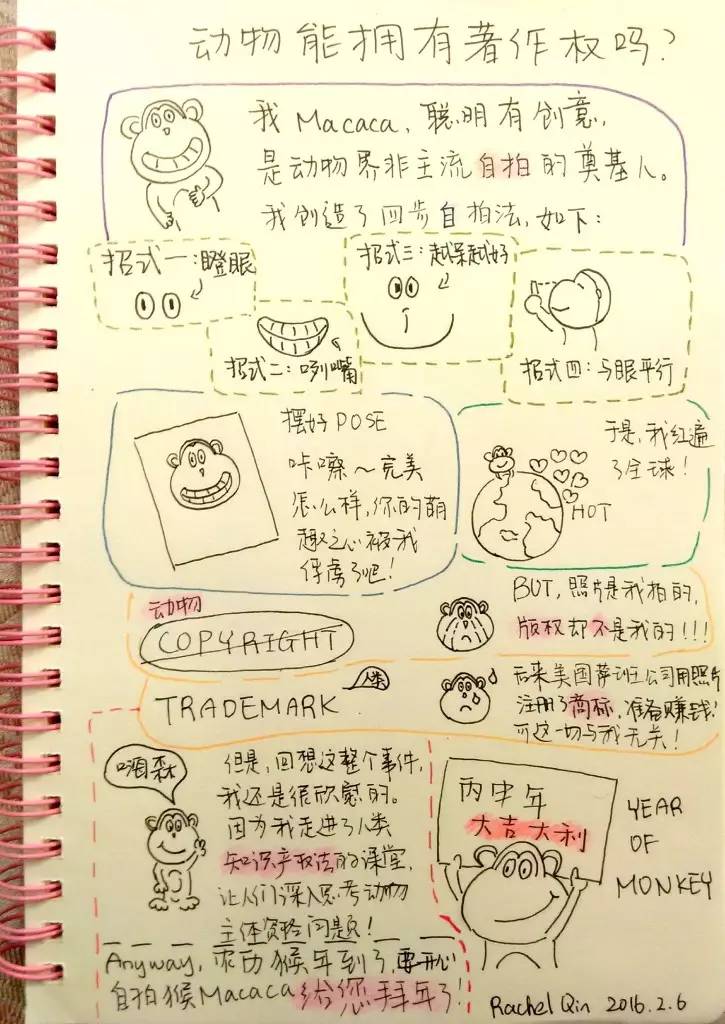 动物能拥有著作权吗?
我 Macaca, 聪明有创意,
是动物界非主流自拍的奠基人。
我创造了四步自拍法,如下:
招式一:瞪眼
招式二:咧嘴
招式三:越呆越好
招式四:与眼平行
摆好 POSE
咔嚓~完美
怎么样,你的萌
趣之心被我
俘虏了吧!
于是,我红遍
了全球!
HOT
动物
COPYRIGHT
BUT, 照片是我拍的,
版权却不是我的!!!
TRADEMARK
人类
后来美国萨班公司用照片
注册了商标,准备赚钱!
可这一切与我无关!
嗨酒森
但是,回想这整个事件,
我还是很欣慰的。
因为我走进了人类
知识产权法的课堂,
让人们深入思考动物
主体资格问题!
丙申年
大吉大利
YEAR
OF
MONKEY
Anyway, 灵动猴年到了,要开心
自拍猴Macaca给您拜年了!
Rachel Qin 2016.2.6